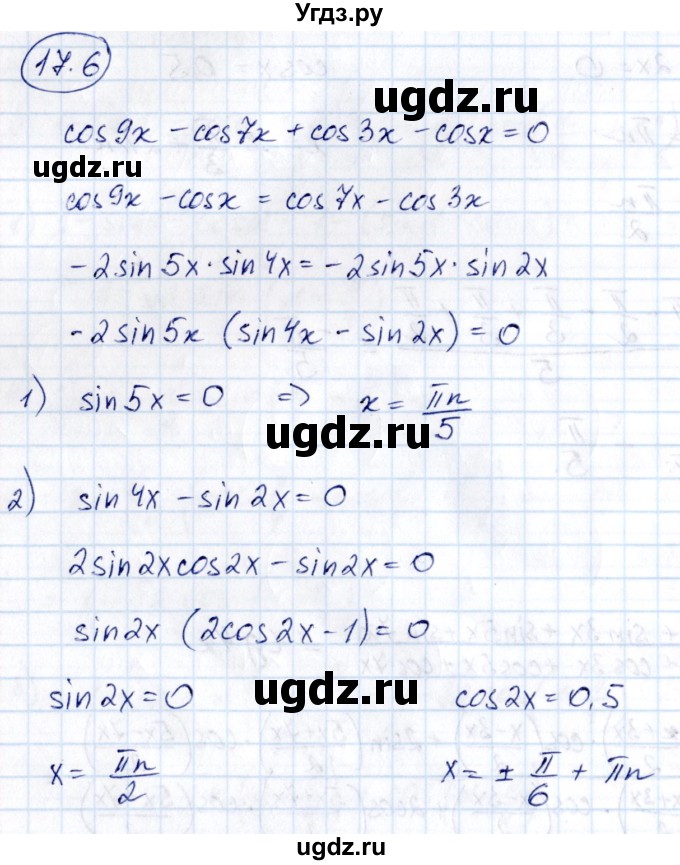 Угдз.ру
17.6
ugdz.ru
cos9x - cos7x + cos3x - cosx = 0
ugdz.ru
cos9x - cosx = cos7x - cos3x
ugdz.ru
-2sin5x·sin4x = -2sin5x·sin2x
-2sin5x (sin4x - sin2x) = 0
1) sin5x = 0 => x = πn/5
ugdz.ru
2) sin4x - sin2x = 0
2sin2xcos2x - sin2x = 0
sin2x (2cos2x - 1) = 0
ugdz.ru
sin2x = 0 cos2x = 0,5
x = πn/2 x = ± π/6 + πn
ugdz.ru